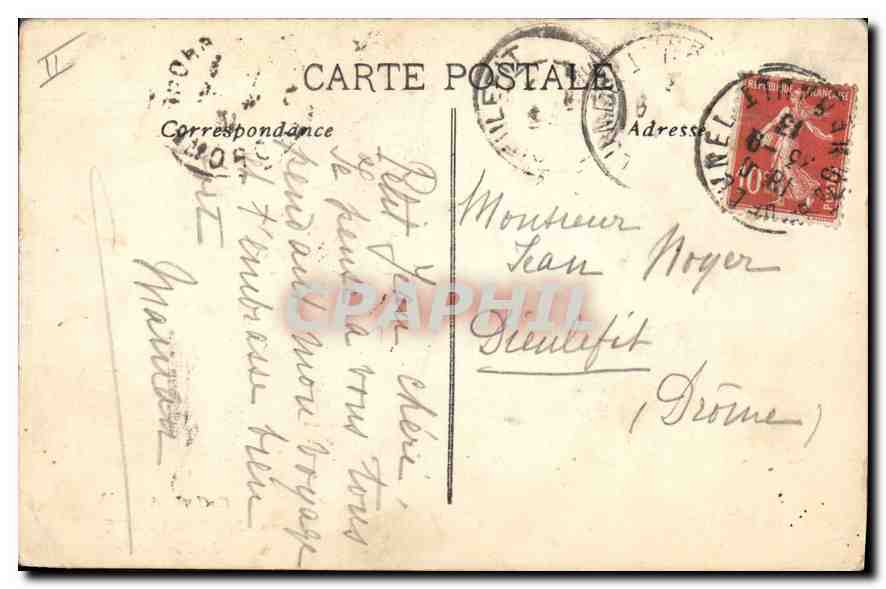 II
CARTE POSTALE
Correspondance
Adresse
RÉPUBLIQUE FRANÇAISE
10
Petit Jean chéri,
Je pense à vous tous
pendant mon voyage
et t'embrasse bien
fort
Maman
Monsieur
Jean Noyer
Dieulefit
(Drôme)
CPAPHIL